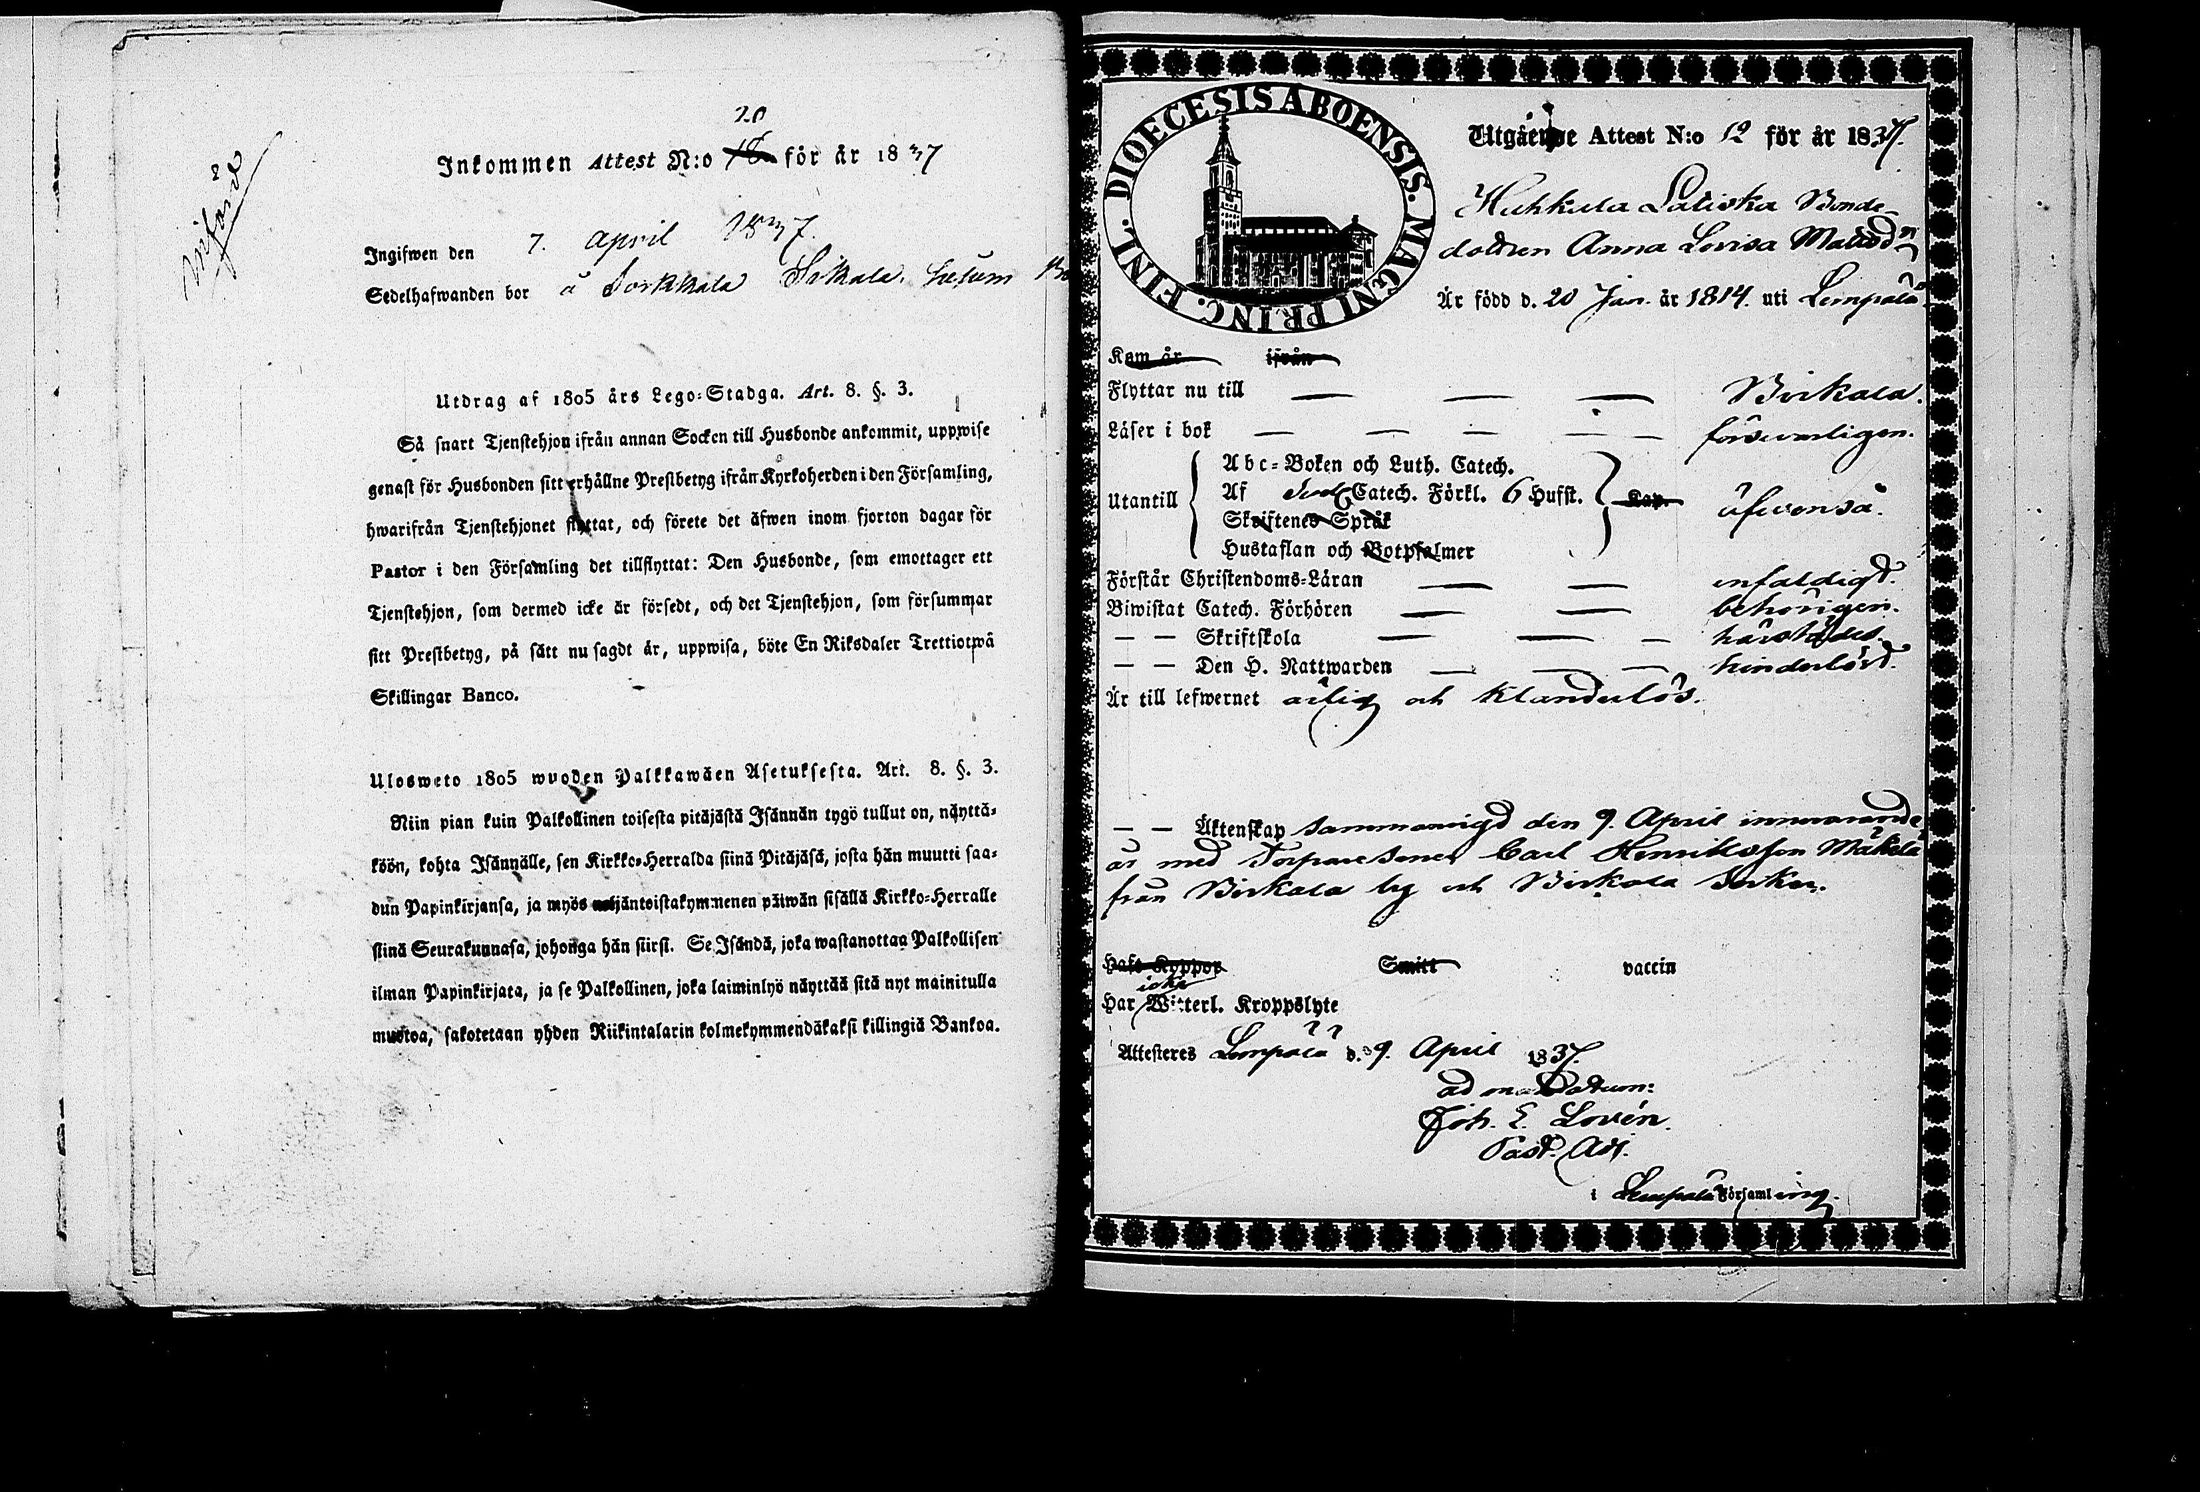 införd
20
Inkommen Attest N:o 18 för år 1837
Ingifwen den 7. april 1837.
Sedelhafwanden bor å
Utdrag af 1805 års Lego-Stadga. Art. 8. §. 3.
Så snart Tjenstehjon ifrån annan Socken till Husbonde ankommit, uppwise
genast för Husbonden sitt erhållne Prestbetyg ifrån Kyrkoherden i den Församling,
hwarifrån Tjenstehjonet flyttat, och förete det äfwen inom fjorton dagar för
Pastor i den Församling det tillflyttat: Den Husbonde, som emottager ett
Tjenstehjon, som dermed icke är försedt, och det Tjenstehjon, som försummar
sitt Prestbetyg, på sätt nu sagdt är, uppwisa, böte En Riksdaler Trettiotwå
Skillingar Banco.
Ulosweto 1805 wuoden Palkkawäen Asetuksesta. Art. 8. §. 3.
Niin pian kuin Palkollinen toisesta pitäjästä Isännän tygö tullut on, näyttä-
köön, kohta Isännälle, sen Kirkko-Herralda siinä Pitäjäsä, josta hän muutti saa-
dun Papinkirjansa, ja myös neljäntoistakymmenen päiwän sisällä Kirkko-Herralle
siinä Seurakunnasa, johonga hän siirsi. Se Isändä, joka wastanottaa Palkollisen
ilman Papinkirjata, ja se Palkollinen, joka laiminlyö näyttää sitä nyt mainitulla
muotoa, sakotetaan yhden Riikintalarin kolmekymmendäkaksi killingiä Bankoa.
DIOECESIS ABOENSIS. MAGNI PRINC. FINL.
Utgående Attest N:o 12 för år 1837.
Huhkula Bonde-
dottren Anna Lovisa Mattsdr
Är född d. 20 Jan. år 1814. uti Lempälä
Kom år ifrån
Flyttar nu till — — — Birkala.
Läser i bok — — — — — försvarligen.
Utantill
Abc-Boken och Luth. Catech.
Af Sved. Catech. Förkl. 6 Hufst. Kap. äfvenså.
Skriftenes Språk
Hustaflan och Botpsalmer
Förstår Christendoms-Läran — — enfaldigt.
Biwistat Catech. Förhören — — behörigen.
— — Skriftskola — — — härstädes.
— — Den H. Nattwarden — — — hinderlöst.
Är till lefwernet ärlig och klanderlös.
— — Äktenskap sammanvigd den 9. April innevarande
år med Torparesonen Carl Henriksson Mäkelä
från Birkala by och Birkala Socken.
Haft Koppor Smitt vaccin
icke
Har Witterl. Kroppslyte
Attesteres Lempälä d. 9. April 1837.
ad mandatum:
Joh. E. Lovén.
Past. Adj.
i Lempälä Församling.